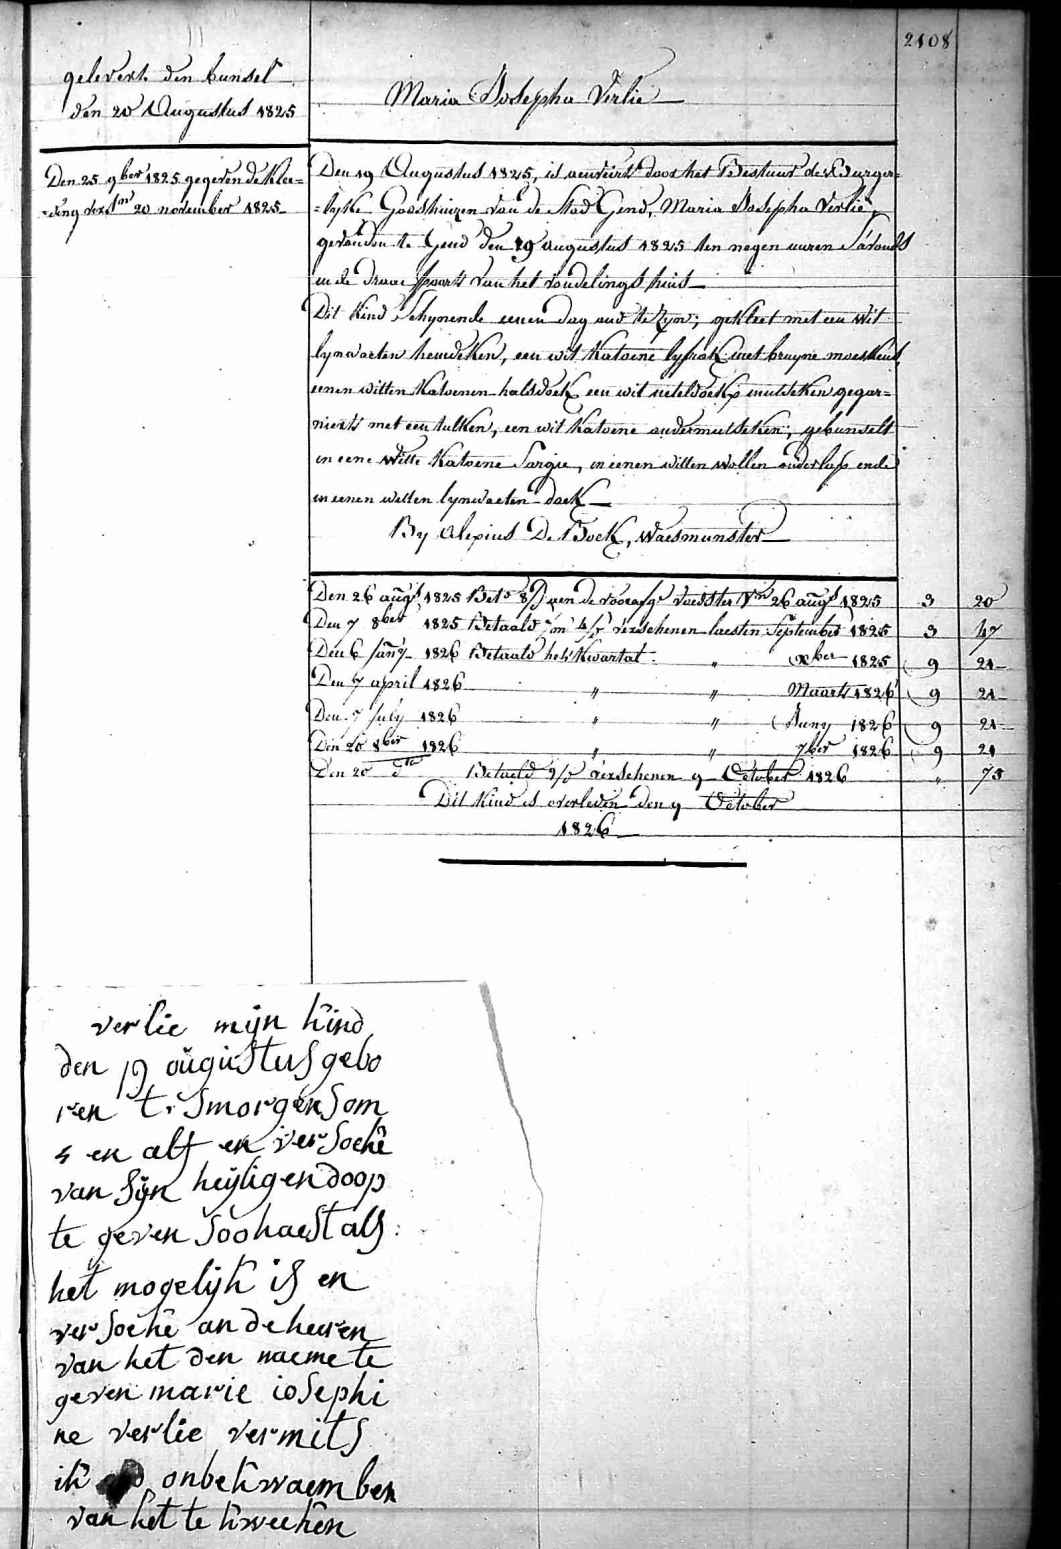 2108
gelevert den bunsel
den 20 Augustus 1825
Maria Josepha Verlie
Den 25 9ber 1825 gegeven de klee=
=ding verst. 20 november 1825
Den 19 Augustus 1825, is aenveird door het Bestuur der Burger=
=lyke Godshuizen van de Stad Gend, Maria Josepha Verlie,
gevonden te Gend den 19 augustus 1825 ten negen uuren S'avonds
in de draeepoort van het vondelingshuis
Dit Kind schynende eenen dag oud te zyn; gekleet met een wit
lynwaeten hemdeken, een wit katoene lyfrok met bruyne moeskens,
eenen witten katoenen halsdoek een wit neteldoeks mutseken gegar=
nierts met een tulken, een wit katoene ondermutseken; gebunselt
in eene witte katoene Sargie, in eenen witten wollen onderlap ende
in eenen witten lynwaeten doek
By Alexius De Bock, Waesmunster
Den 26 augt 1825 Bet. 8/ aen de voorafg. voedster 26 augt 1825 3 20
Den 7 8ber 1825 Betaald verschenen laesten September 1825 3 47
Den 6 Jany 1826 Betaald het kwartal " xber 1825 9 21
Den 7 april 1826 " " Maart 1826 9 21
Den 7 July 1826 " " Juny 1826 9 21
Den 20 8ber 1826 " " 7ber 1826 9 21
Den 20 dto Betaeld 9/ verschenen 9 October 1826 " 75
Dit Kind is overleden den 9 October
1826
verlie mijn kind
den 19 augustus gebo
ren t. smorgens om
4 en alf en versoeke
van sijn heyligen doop
te geven soo haest als
het mogelijk is en
versoeke an de heeren
van het den naeme te
geven marie iosephi
ne verlie vermits
ik onbekwaem ben
van het te kweeken